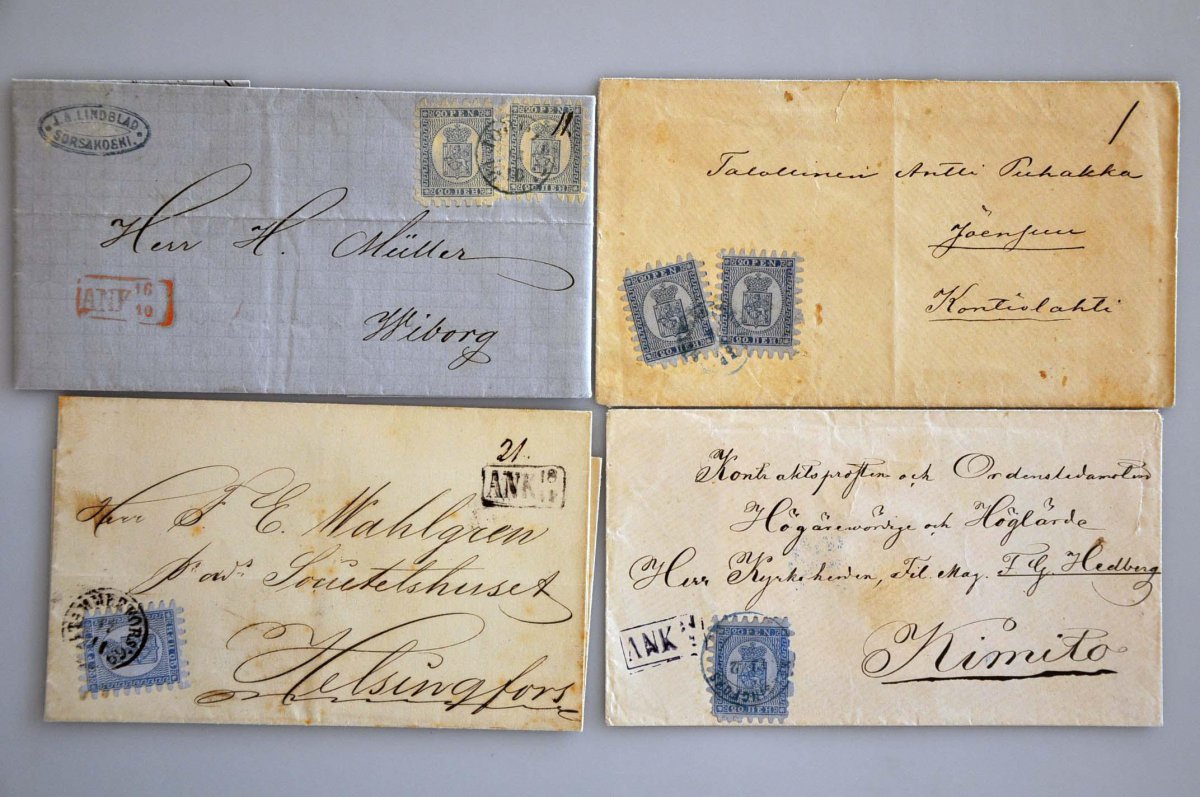 J. A. LINDBLAD
SORSAKOSKI.
20 PEN 20 PEN
11
20 ПЕН 20 ПЕН
Herr H. Müller
ANK 16
10
Wiborg
1
Talollinen Antti Puhakka
Joensuu
Kontiolahti
20 PEN 20 PEN
20 ПЕН 20 ПЕН
21.
ANK
Herr F. E. Wahlgren
Societetshuset
Helsingfors
20 ПЕН
Kontraktsprosten och Ordensledamoten
Högärewördige och Höglärde
Herr Kyrkoherden, Fil. Mag. F. G. Hedberg
Kimito
ANK
20 PEN
20 ПЕН